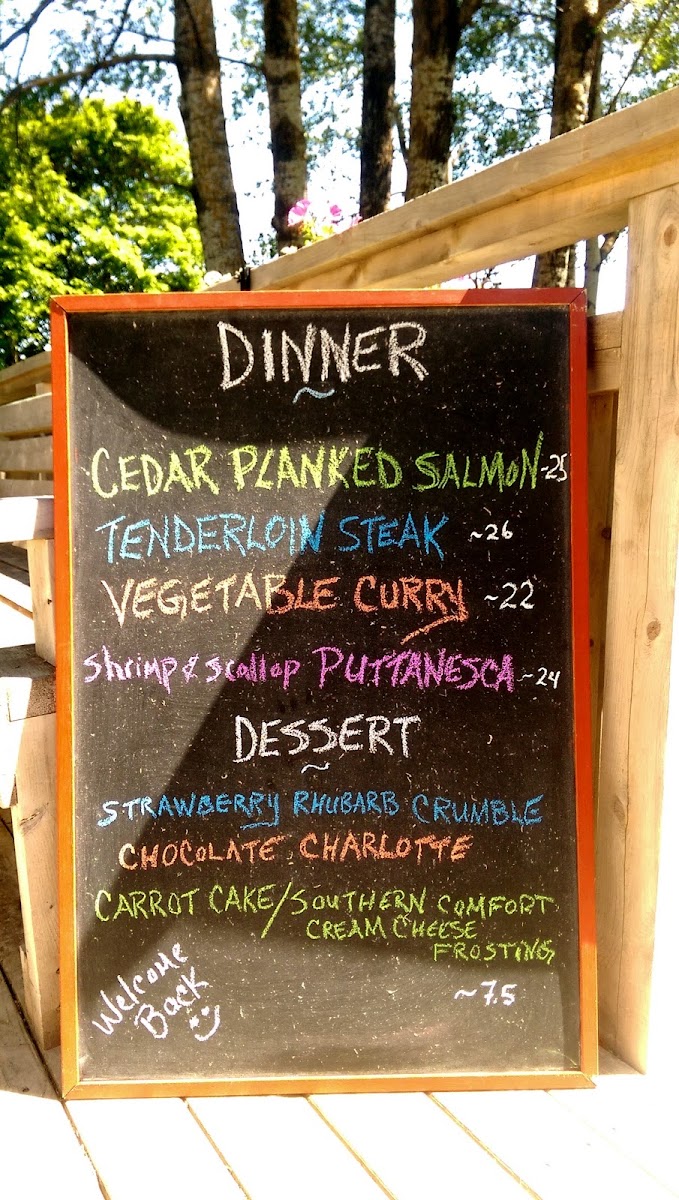 DINNER
~
CEDAR PLANKED SALMON ~25
TENDERLOIN STEAK ~26
VEGETABLE CURRY ~22
Shrimp & Scallop PUTTANESCA ~24
DESSERT
~
STRAWBERRY RHUBARB CRUMBLE
CHOCOLATE CHARLOTTE
CARROT CAKE/SOUTHERN COMFORT
CREAM CHEESE
FROSTING
~7.5
Welcome
Back